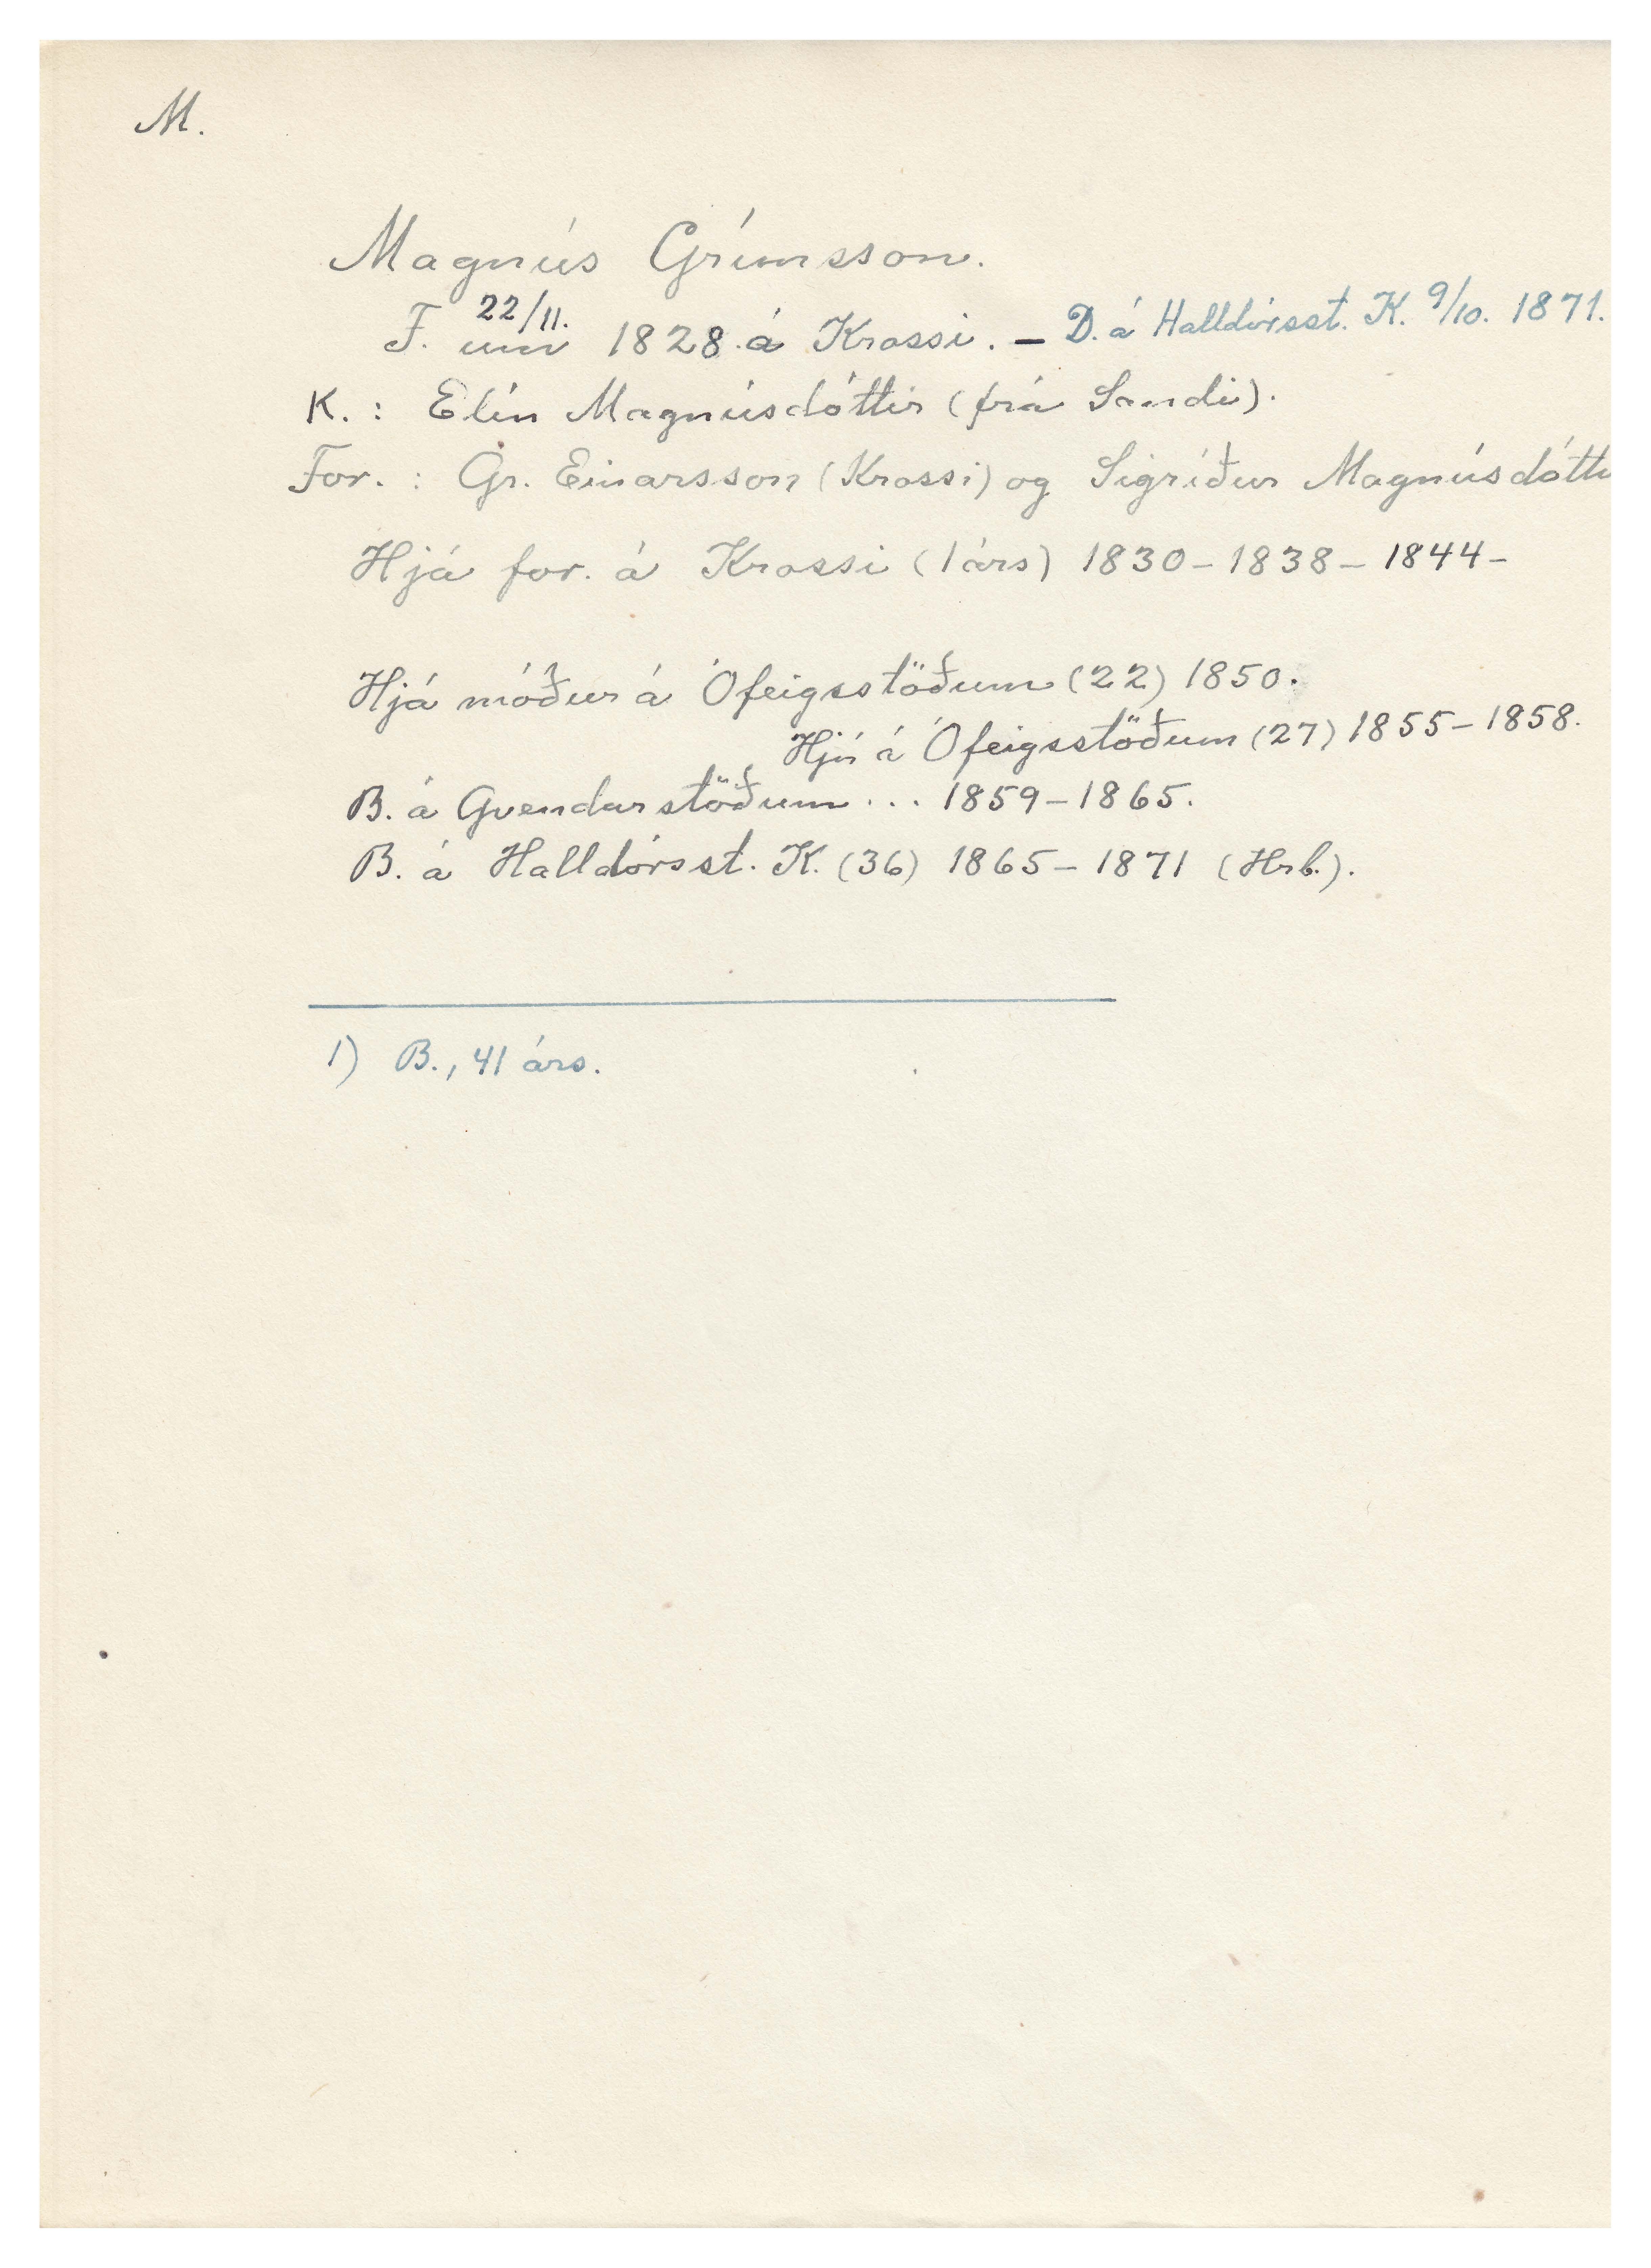 M.
Magnús Grímsson.
22/11.
F. um 1828 á Krossi. – D. á Halldórsst. K. 9/10. 1871.
K. : Elín Magnúsdóttir (frá Sandi).
For. : Gr. Einarsson (Krossi) og Sigríður Magnúsdótti
Hjá for. á Krossi (1 árs) 1830 – 1838 – 1844 –
Hjá móður á Ófeigsstöðum (22) 1850.
Hjú á Ófeigsstöðum (27) 1855 – 1858.
B. á Gvendarstöðum . . . 1859 – 1865.
B. á Halldórsst. K. (36) 1865 – 1871 (Hrb.).
1) B., 41 árs.